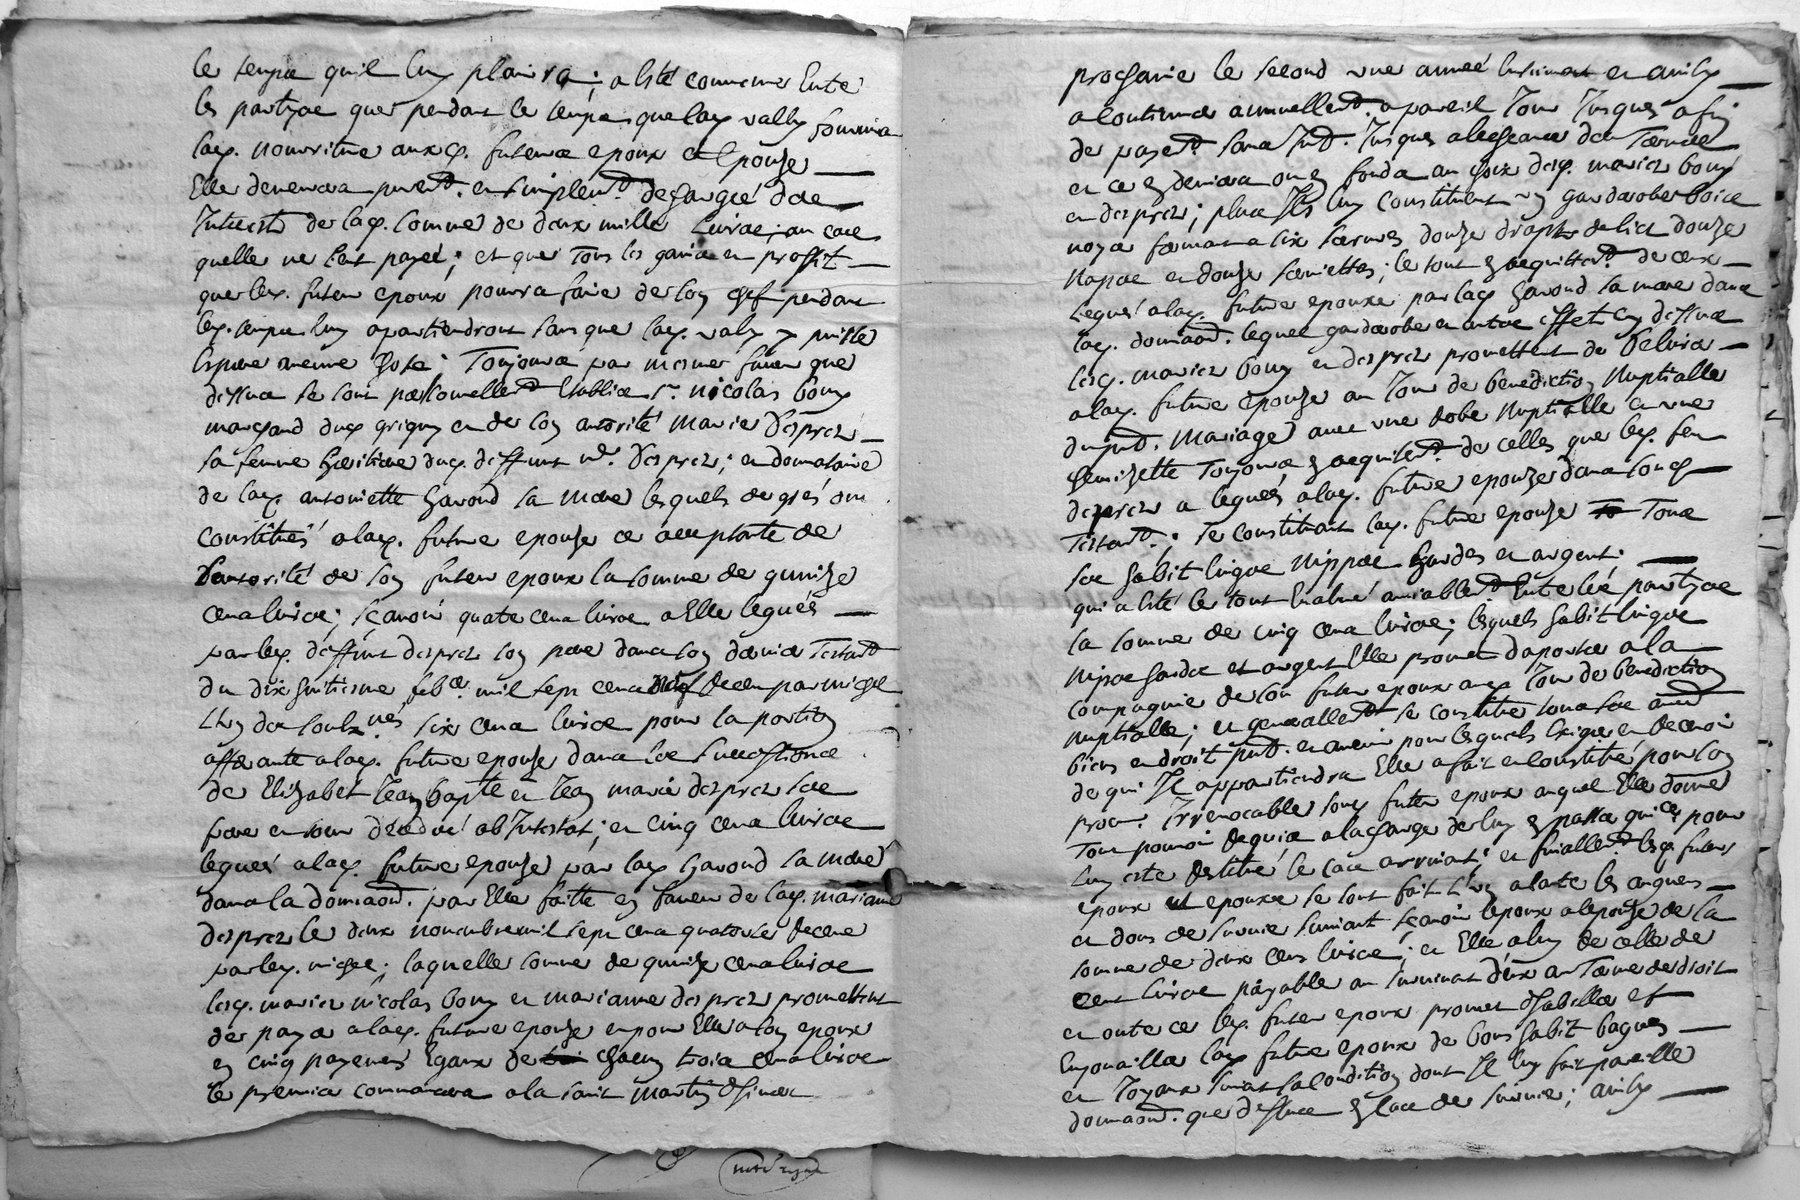 le temps quil luy plaira; a esté convenu Entre
les partyes que pendant le temps que lad. vally fournira
lad. nourriture auxd. futeurs epoux et Epouze
Elle demeurera purem.t et simplem.t deschargée des
Interests de lad. somme de deux mille Livres; au cas
quelle ne leut payée; et que Tous les gains et proffit
que led. futeur epoux pourra faire de son chef pendant
led. temps luy apartiendront sans que lad. vally y puisse
Espere meme chose; Toujours par mesme faveur que
dessus se sont personnellem.t Etablies s.r nicolas bouy
marchand dud. grigny et de son autorité Marie Desprez
sa femme heritiere dud. deffunt Desprez; et donnataire
de lad. antoniette havond sa mere lesquels de grés ont
constitués alad. future epouze ce acceptante de
Lautorité de son futeur epoux la somme de quinze
cens livres; sçavoir quatre cens livres a Elle legués
par led. deffunt desprez son pere dans son dernier Testam.t
du dix huitiesme mil sept cens neuf Receu par michel
six cens livres pour la portion
afferante alad. future epouze dans les successions
de Elizabet Jean bapte et Jean marie desprez ses
frere et sœur décedés ab Intestat; et cinq cens livres
legués alad. future epouze par lad. havond sa mere
dans la donnaon. par Elle faitte en faveur de lad. mariane
desprez le deux novembre mil sept cens quatorze Receue
par led. michel; laquelle somme de quinze cens livres
lesd. mariez nicolas bouy et marianne desprez promettent
de payer alad. future epouze et pour Elle a son epoux
en cinq payemens Egaux de chacun trois cens livres
le premier commancera a la saint Martin dhiver
prochaine le second une année ensuivant et ainsy
a continuer annuellem.t a pareil Jour Jusques a fin
de payem.t sans Int.t Jusques alescheance des Termes
et ce en deniers ou en fonds au choix desd. mariez bouy
et desprez; plus Ils luy constituent un garderobe bois
noyer fermant a six serrures douze draps de lict douze
Napes et douze serviettes; le tout en acquittem.t de ceux
legués alad. future epouze par lad. havond sa mere dans
lad. donnaon. lequel garderobe et autres effets cy dessus
lesd. mariez bouy et desprez promettent de delivrer
alad. future epouze au Jour de benediction Nuptialle
du pnt. Mariage avec une robe Nuptialle et une
Chemizette Toujours en acquitem.t de celles que led. feu
desprez a legués alad. future epouze dans sond.
Testam.t; se constituant lad. future epouze Tous
ses habit linge Nippes hardes et argent;
qui a esté le tout Evalué amiablem.t Entre les partyes
la somme de cinq cens livres; lesquels habit linge
Nipes hardes et argent Elle promet daporter a la
compagnie de son futeur epoux aud. Jour de benediction
Nuptialle; et generallem.t se constitue tous ses aut.
biens et droit pnt. et avenir pour lesquels Exiger et Recevoir
de qui Il appartiendra Elle a fait et constitué pour son
procur. Irrevocable sond. futeur epoux auquel Elle donne
Tout pouvoir Requis a la charge de luy en passer quitce. pour
luy estre Restitué le cas arrivant; et finallem.t lesd. futeurs
epoux et epouze se sont fait les augmens
et dons de survie suivant sçavoir lepoux a lepouze de la
somme de deux cens livres; et Elle a luy de celle de
cent livres payable au survivant deux au Terme de droit
et outre ce led. futeur epoux promet dhabiller et
Enjoüailler lad. future epouze de bons habit bagues
et Joyaux suivant sa condition dont Il luy fait pareille
donnaon. que dessus en cas de survie; ainsy